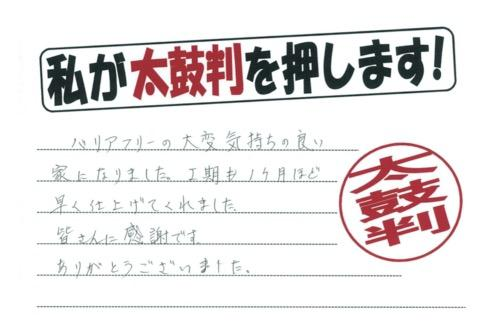 私が太鼓判を押します!
バリアフリーの大変気持ちの良い
家になりました。工期も1ヶ月ほど
早く仕上げてくれました
皆さんに感謝です。
ありがとうございました。
太鼓判